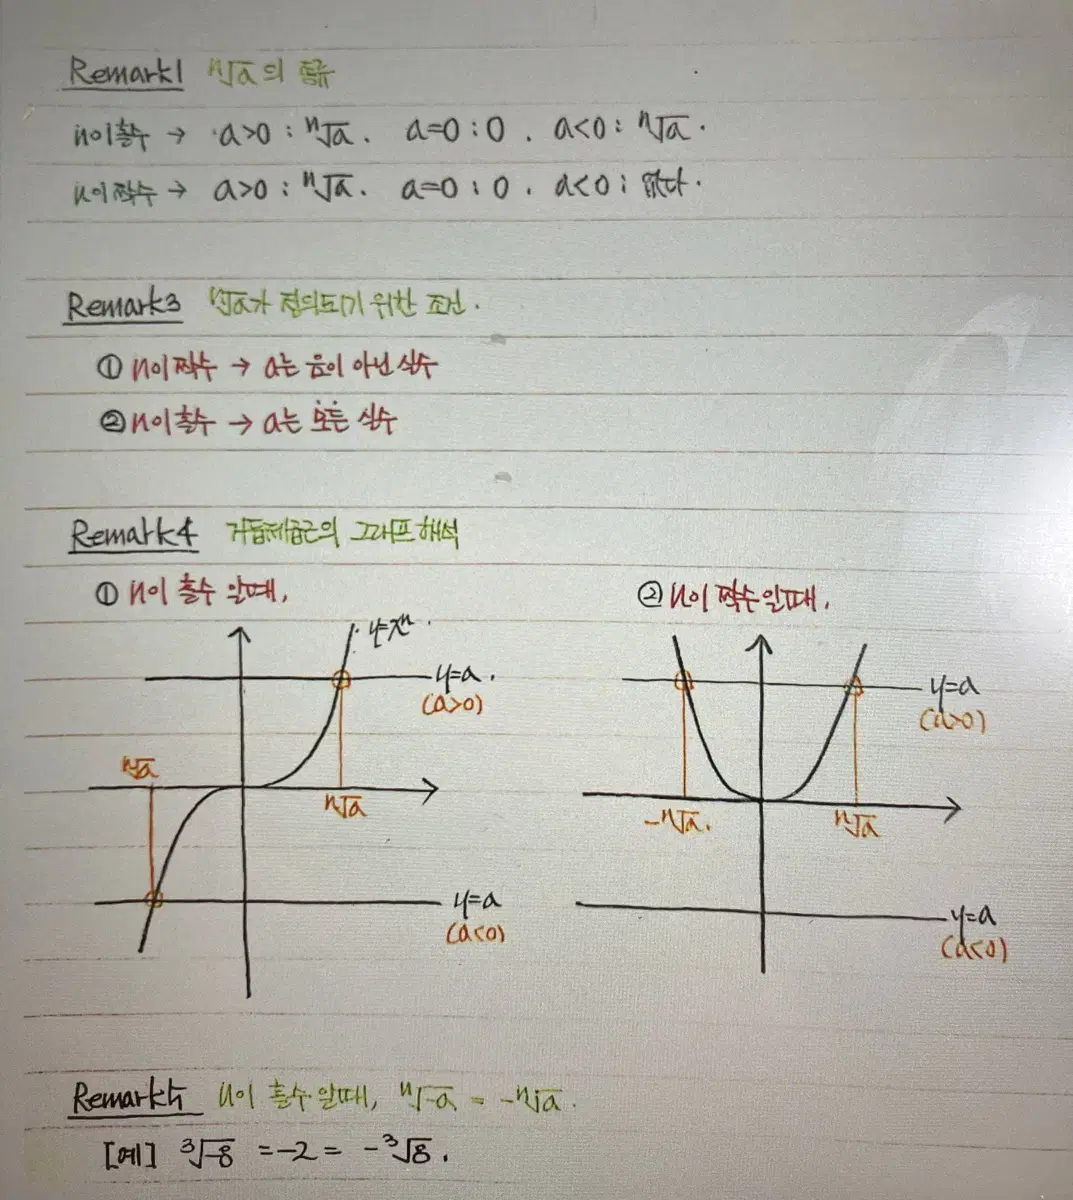 Remark1 ⁿ√a의 종류
n이 홀수 → a>0 : ⁿ√a. a=0 : 0. a<0 : ⁿ√a.
n이 짝수 → a>0 : ⁿ√a. a=0 : 0. a<0 : 없다.
Remark3 ⁿ√a가 정의되기 위한 조건.
① n이 짝수 → a는 음이 아닌 실수
② n이 홀수 → a는 모든 실수
Remark4 거듭제곱근의 그래프 해석
① n이 홀수 일때,
② n이 짝수일때,
y=xⁿ.
y=a.
(a>0)
ⁿ√a
ⁿ√a
y=a
(a<0)
y=a
(a>0)
-ⁿ√a.
ⁿ√a
y=a
(a<0)
Remark5 n이 홀수일때, ⁿ√-a = -ⁿ√a.
[예] ³√-8 = -2 = -³√8.